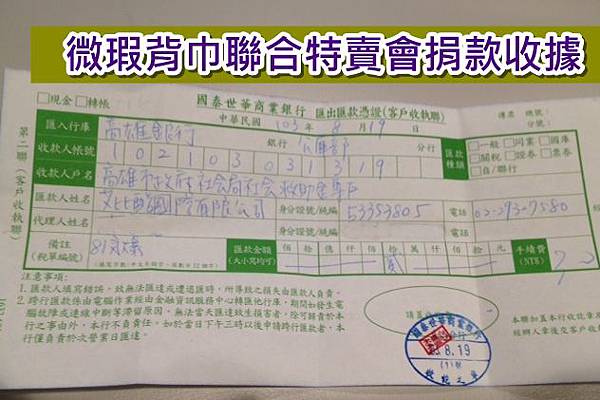 微瑕背巾聯合特賣會捐款收據
□現金□轉帳
國泰世華商業銀行 匯出匯款憑證(客戶收執聯)
中華民國 103 年 8 月 19 日
傳票 總號:
分號:
第二聯(客戶收執聯)
匯入行庫 高雄銀行 銀行 公庫部 分行
匯款種類 □一般□同業□國庫
□關稅□證券□票券
□自/聯行
收款人帳號 102103031319
收款人戶名 高雄市政府社會局社會救助金專戶
匯款人姓名 艾比典國際有限公司 身份證號/統編 53353805 電話
代理人姓名 身份證號/統編 電話
備註
(稅單號碼) 81氣爆
匯款金額
(大小寫均可) 佰 拾 億 仟 佰 拾 萬 仟 佰 拾 元
手續費
(NT$)
注意事項:
1. 匯款人填寫錯誤,致無法匯達或遭退匯時,所導致之損失由匯款人負責。
2. 跨行匯款係由電腦作業經由金融資訊服務中心轉匯他行庫,期間如發生電
腦故障或連線中斷等滯留原因,無法當天匯達致生損害者,除可歸責於本
行之事由外,本行不負責任。如於當日下午三時以後申請跨行匯款者,本
行僅負責於次營業日匯達。
國泰世華商業銀行
8.19